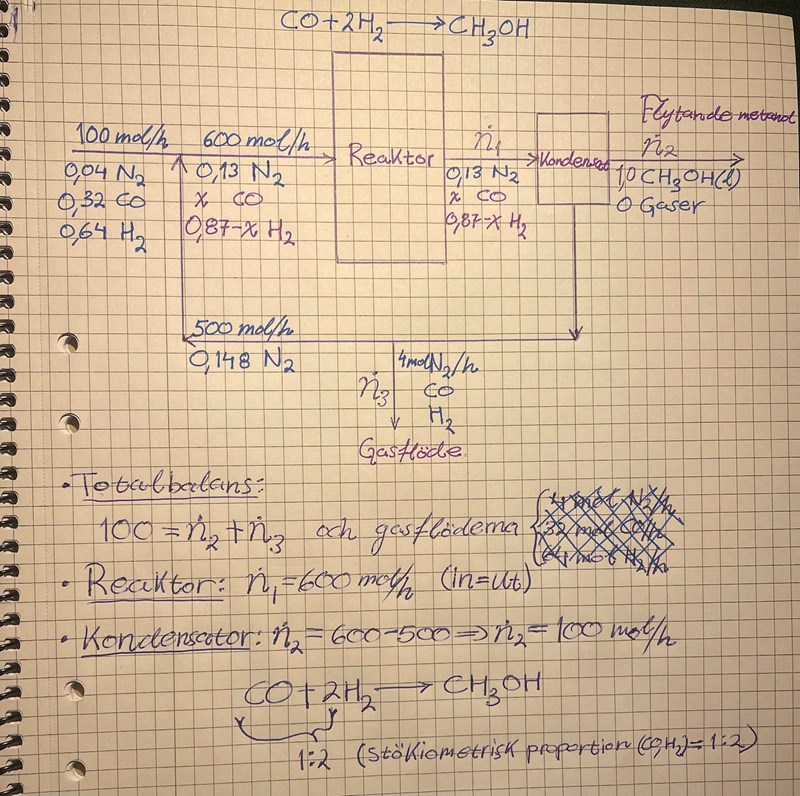 CO+2H₂ → CH₃OH
100 mol/h
0,04 N₂
0,32 CO
0,64 H₂
600 mol/h
0,13 N₂
x CO
0,87-x H₂
Reaktor
ṅ₁
0,13 N₂
x CO
0,87-x H₂
Kondensat
Flytande metanol
ṅ₂
1,0 CH₃OH(l)
0 Gaser
500 mol/h
0,148 N₂
ṅ₃
4molN₂/h
CO
H₂
Gasflöde
• Totalbalans:
100 = ṅ₂ + ṅ₃ och gasflöderna {4 mol N₂/h
32 mol CO/h
64 mol H₂/h
• Reaktor: ṅ₁=600 mol/h (in=ut)
• Kondensator: ṅ₂=600-500 ⇒ ṅ₂=100 mol/h
CO + 2H₂ → CH₃OH
1:2 (Stökiometrisk proportion (CO,H₂)=1:2)